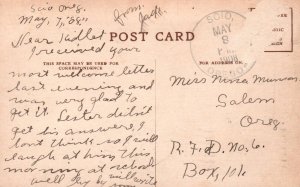 Scio Org.
May, 7, "08"
from
Jeff.
POST CARD
Dear Kidlet
I received your
THIS SPACE MAY BE USED FOR
CORRESPONDENCE
most welcome letter
last evening and
was very glad to
get it. Lester didn't
get his answere, I
dont think so I will
laugh at him this
morning at school
well by by
write
soon
SCIO,
MAY
8
1908
Miss Nina Munson
Salem
Oreg.
R.F.D. No. 6.
Box,